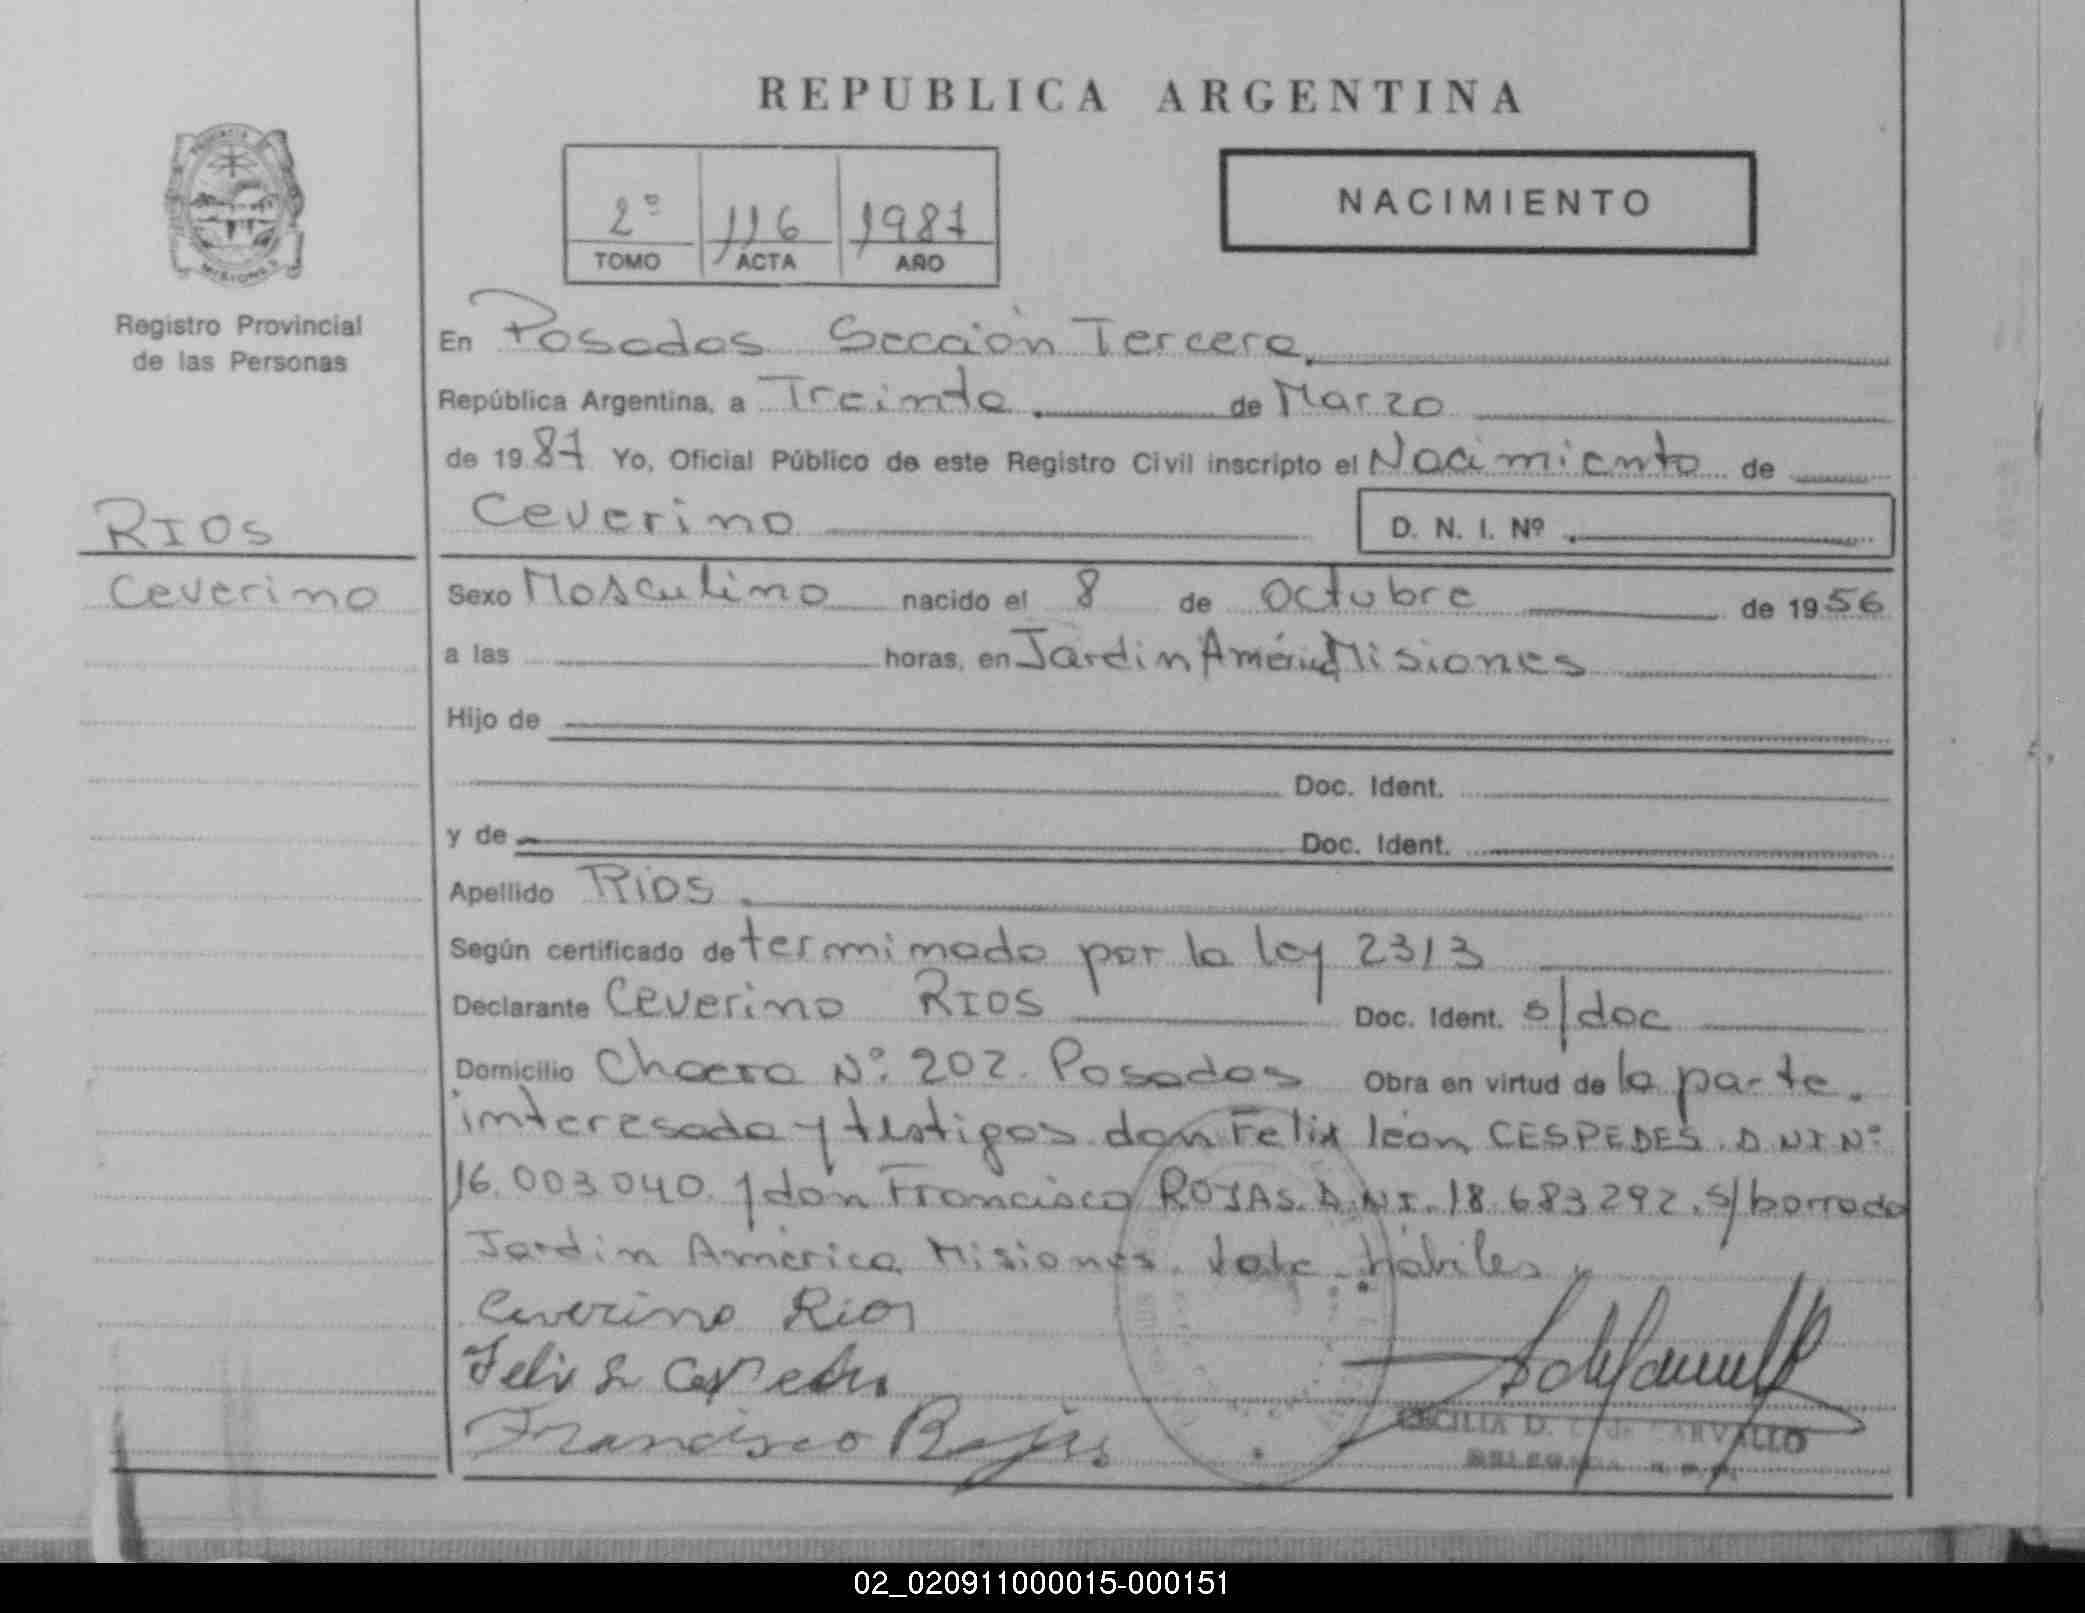 REPUBLICA ARGENTINA
2º 116 1987
TOMO ACTA AÑO
NACIMIENTO
PROVINCIA
MISIONES
Registro Provincial
de las Personas
RIOS
Ceverino
En Posadas Sección Tercera
República Argentina, a Treinta de Marzo
de 1987 Yo, Oficial Público de este Registro Civil inscripto el Nacimiento de
Ceverino D. N. I. Nº
Sexo Masculino nacido el 8 de Octubre de 1956
a las horas, en Jardin América Misiones
Hijo de
Doc. Ident.
y de Doc. Ident.
Apellido RIOS
Según certificado determinado por la ley 2313
Declarante Ceverino RIOS Doc. Ident. s/doc
Domicilio Chacra Nº: 202. Posadas Obra en virtud de la parte
interesada y testigos don Felix león CESPEDES. D.N.I Nº
16.003.040. y don Francisco ROJAS. D.N.I. 18.683292. s/borrado
Jardin América Misiones. Vale. hábiles
Ceverino Rios
Felix L Cespedes
Francisco Rojas
CECILIA D. de CARVALLO
02_020911000015-000151